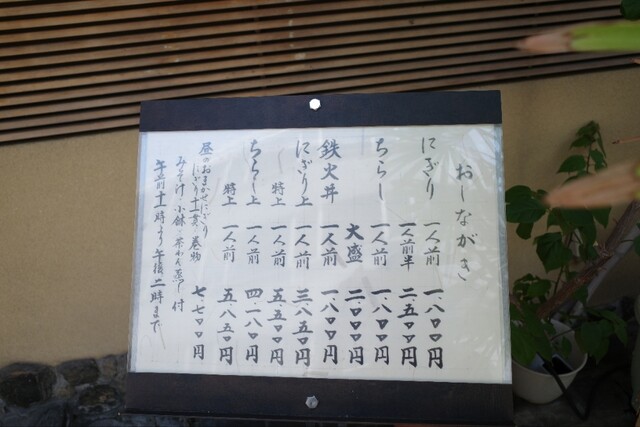 おしながき
にぎり 一人前 一、八〇〇円
一人前半 二、五〇〇円
ちらし 一人前 一、八〇〇円
大盛 二、〇〇〇円
鉄火丼 一人前 一、八〇〇円
にぎり上 一人前 三、八五〇円
特上 一人前 五、五〇〇円
ちらし上 一人前 四、一八〇円
特上 一人前 五、八五〇円
昼のおまかせにぎり
にぎり十一貫、巻物 七、七〇〇円
みそ汁・小鉢・茶わん蒸し付
午前十一時より午後二時まで